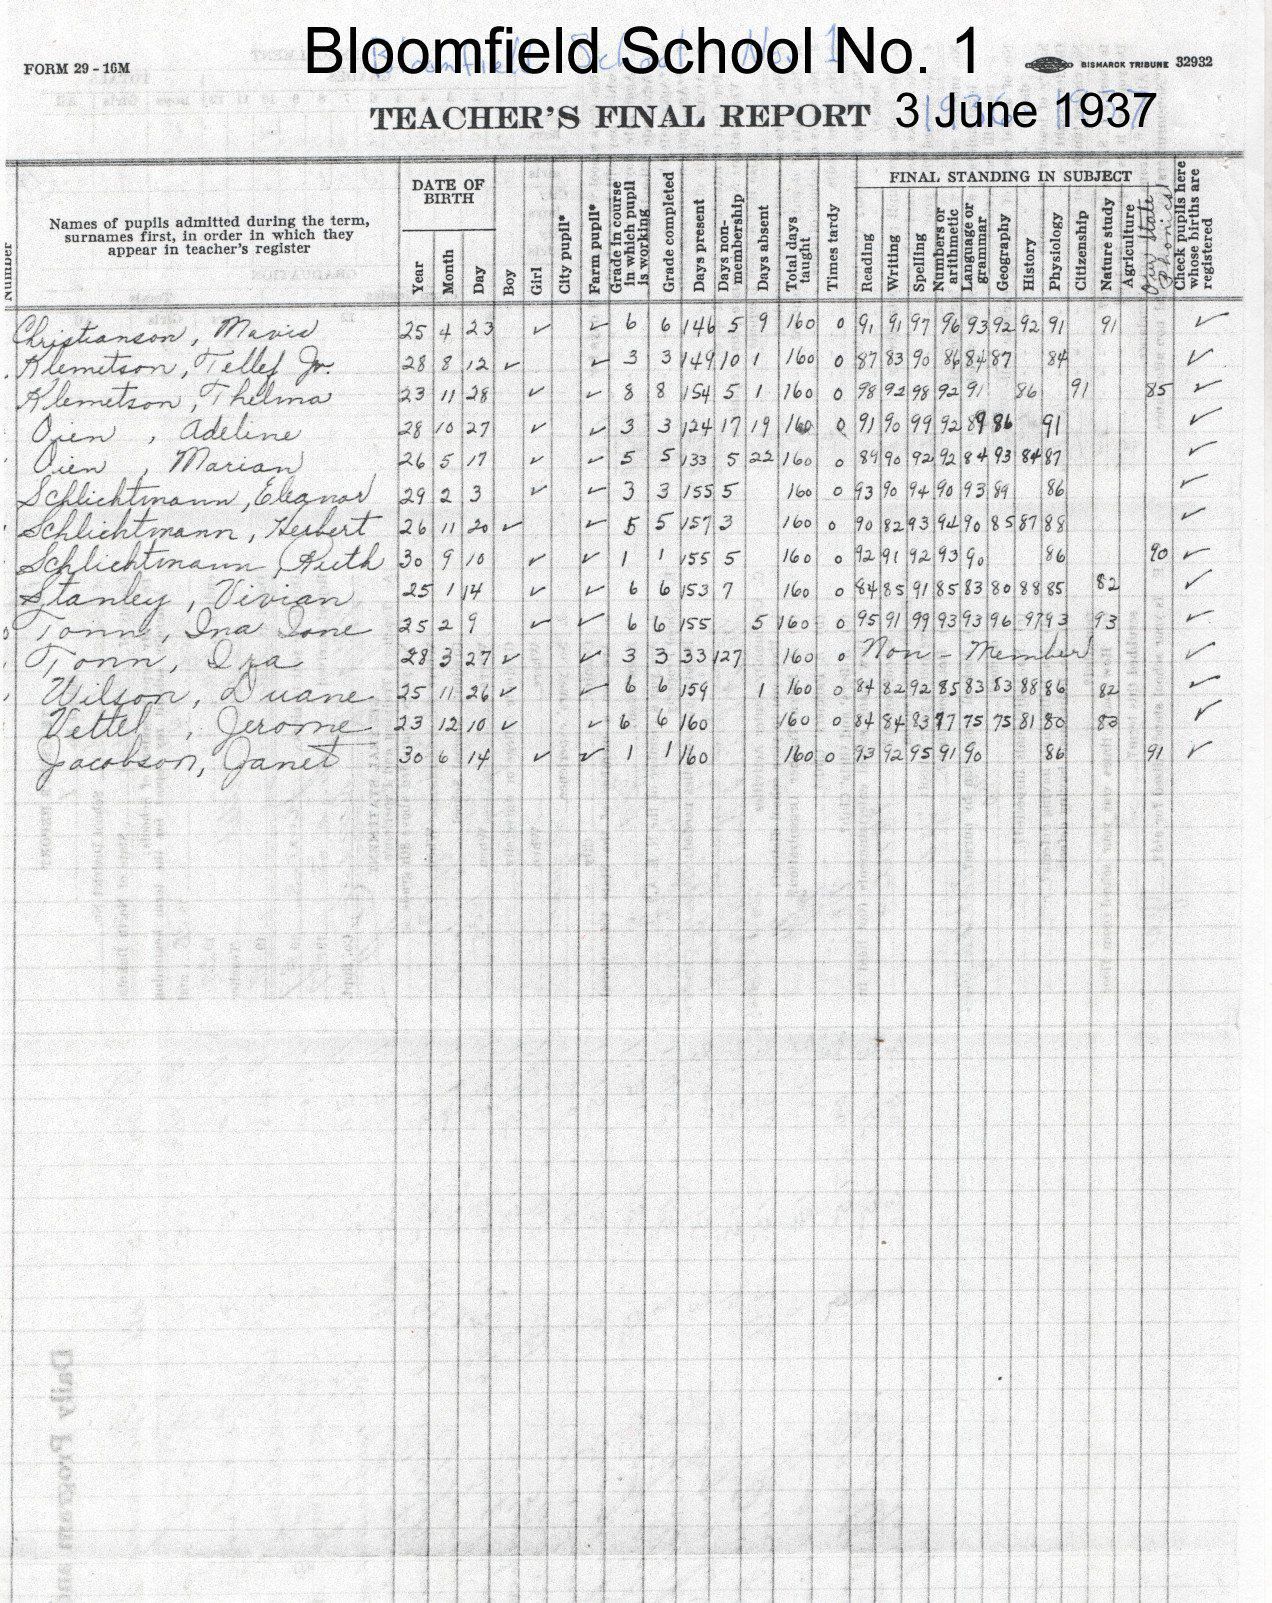 Bloomfield School No. 1
FORM 29 - 16M
BISMARCK TRIBUNE 32932
TEACHER'S FINAL REPORT 3 June 1937
Number
Names of pupils admitted during the term, surnames first, in order in which they appear in teacher's register
DATE OF BIRTH
Year Month Day
Boy
Girl
City pupil*
Farm pupil*
Grade in course in which pupil is working
Grade completed
Days present
Days non-membership
Days absent
Total days taught
Times tardy
FINAL STANDING IN SUBJECT
Reading
Writing
Spelling
Numbers or arithmetic
Language or grammar
Geography
History
Physiology
Citizenship
Nature study
Agriculture
Our State
Phonics
Check pupils here whose births are registered
Christianson, Mavis 25 4 23 ✓ ✓ 6 6 146 5 9 160 0 91 91 97 96 93 92 92 91 91 ✓
Klemetson, Tellef Jr. 28 8 12 ✓ ✓ 3 3 149 10 1 160 0 87 83 90 86 84 87 84 ✓
Klemetson, Thelma 23 11 28 ✓ ✓ 8 8 154 5 1 160 0 98 92 98 92 91 86 91 85 ✓
Oien, Adeline 28 10 27 ✓ ✓ 3 3 124 17 19 160 0 91 90 99 92 89 86 91 ✓
Oien, Marian 26 5 17 ✓ ✓ 5 5 133 5 22 160 0 89 90 92 92 84 93 84 87 ✓
Schlichtmann, Eleanor 29 2 3 ✓ ✓ 3 3 155 5 160 0 93 90 94 90 93 89 86 ✓
Schlichtmann, Herbert 26 11 20 ✓ ✓ 5 5 157 3 160 0 90 82 93 94 90 85 87 88 ✓
Schlichtmann, Ruth 30 9 10 ✓ ✓ 1 1 155 5 160 0 92 91 92 93 90 86 90 ✓
Stanley, Vivian 25 1 14 ✓ ✓ 6 6 153 7 160 0 84 85 91 85 83 80 88 85 82 ✓
Tonn, Ina Ione 25 2 9 ✓ ✓ 6 6 155 5 160 0 95 91 99 93 93 96 97 93 93 ✓
Tonn, Ira 28 3 27 ✓ ✓ 3 3 33 127 160 0 Non - Member ✓
Wilson, Duane 25 11 26 ✓ ✓ 6 6 159 1 160 0 84 82 92 85 83 83 88 86 82 ✓
Vettel, Jerome 23 12 10 ✓ ✓ 6 6 160 160 0 84 84 83 77 75 75 81 80 83 ✓
Jacobson, Janet 30 6 14 ✓ ✓ 1 1 160 160 0 93 92 95 91 90 86 91 ✓